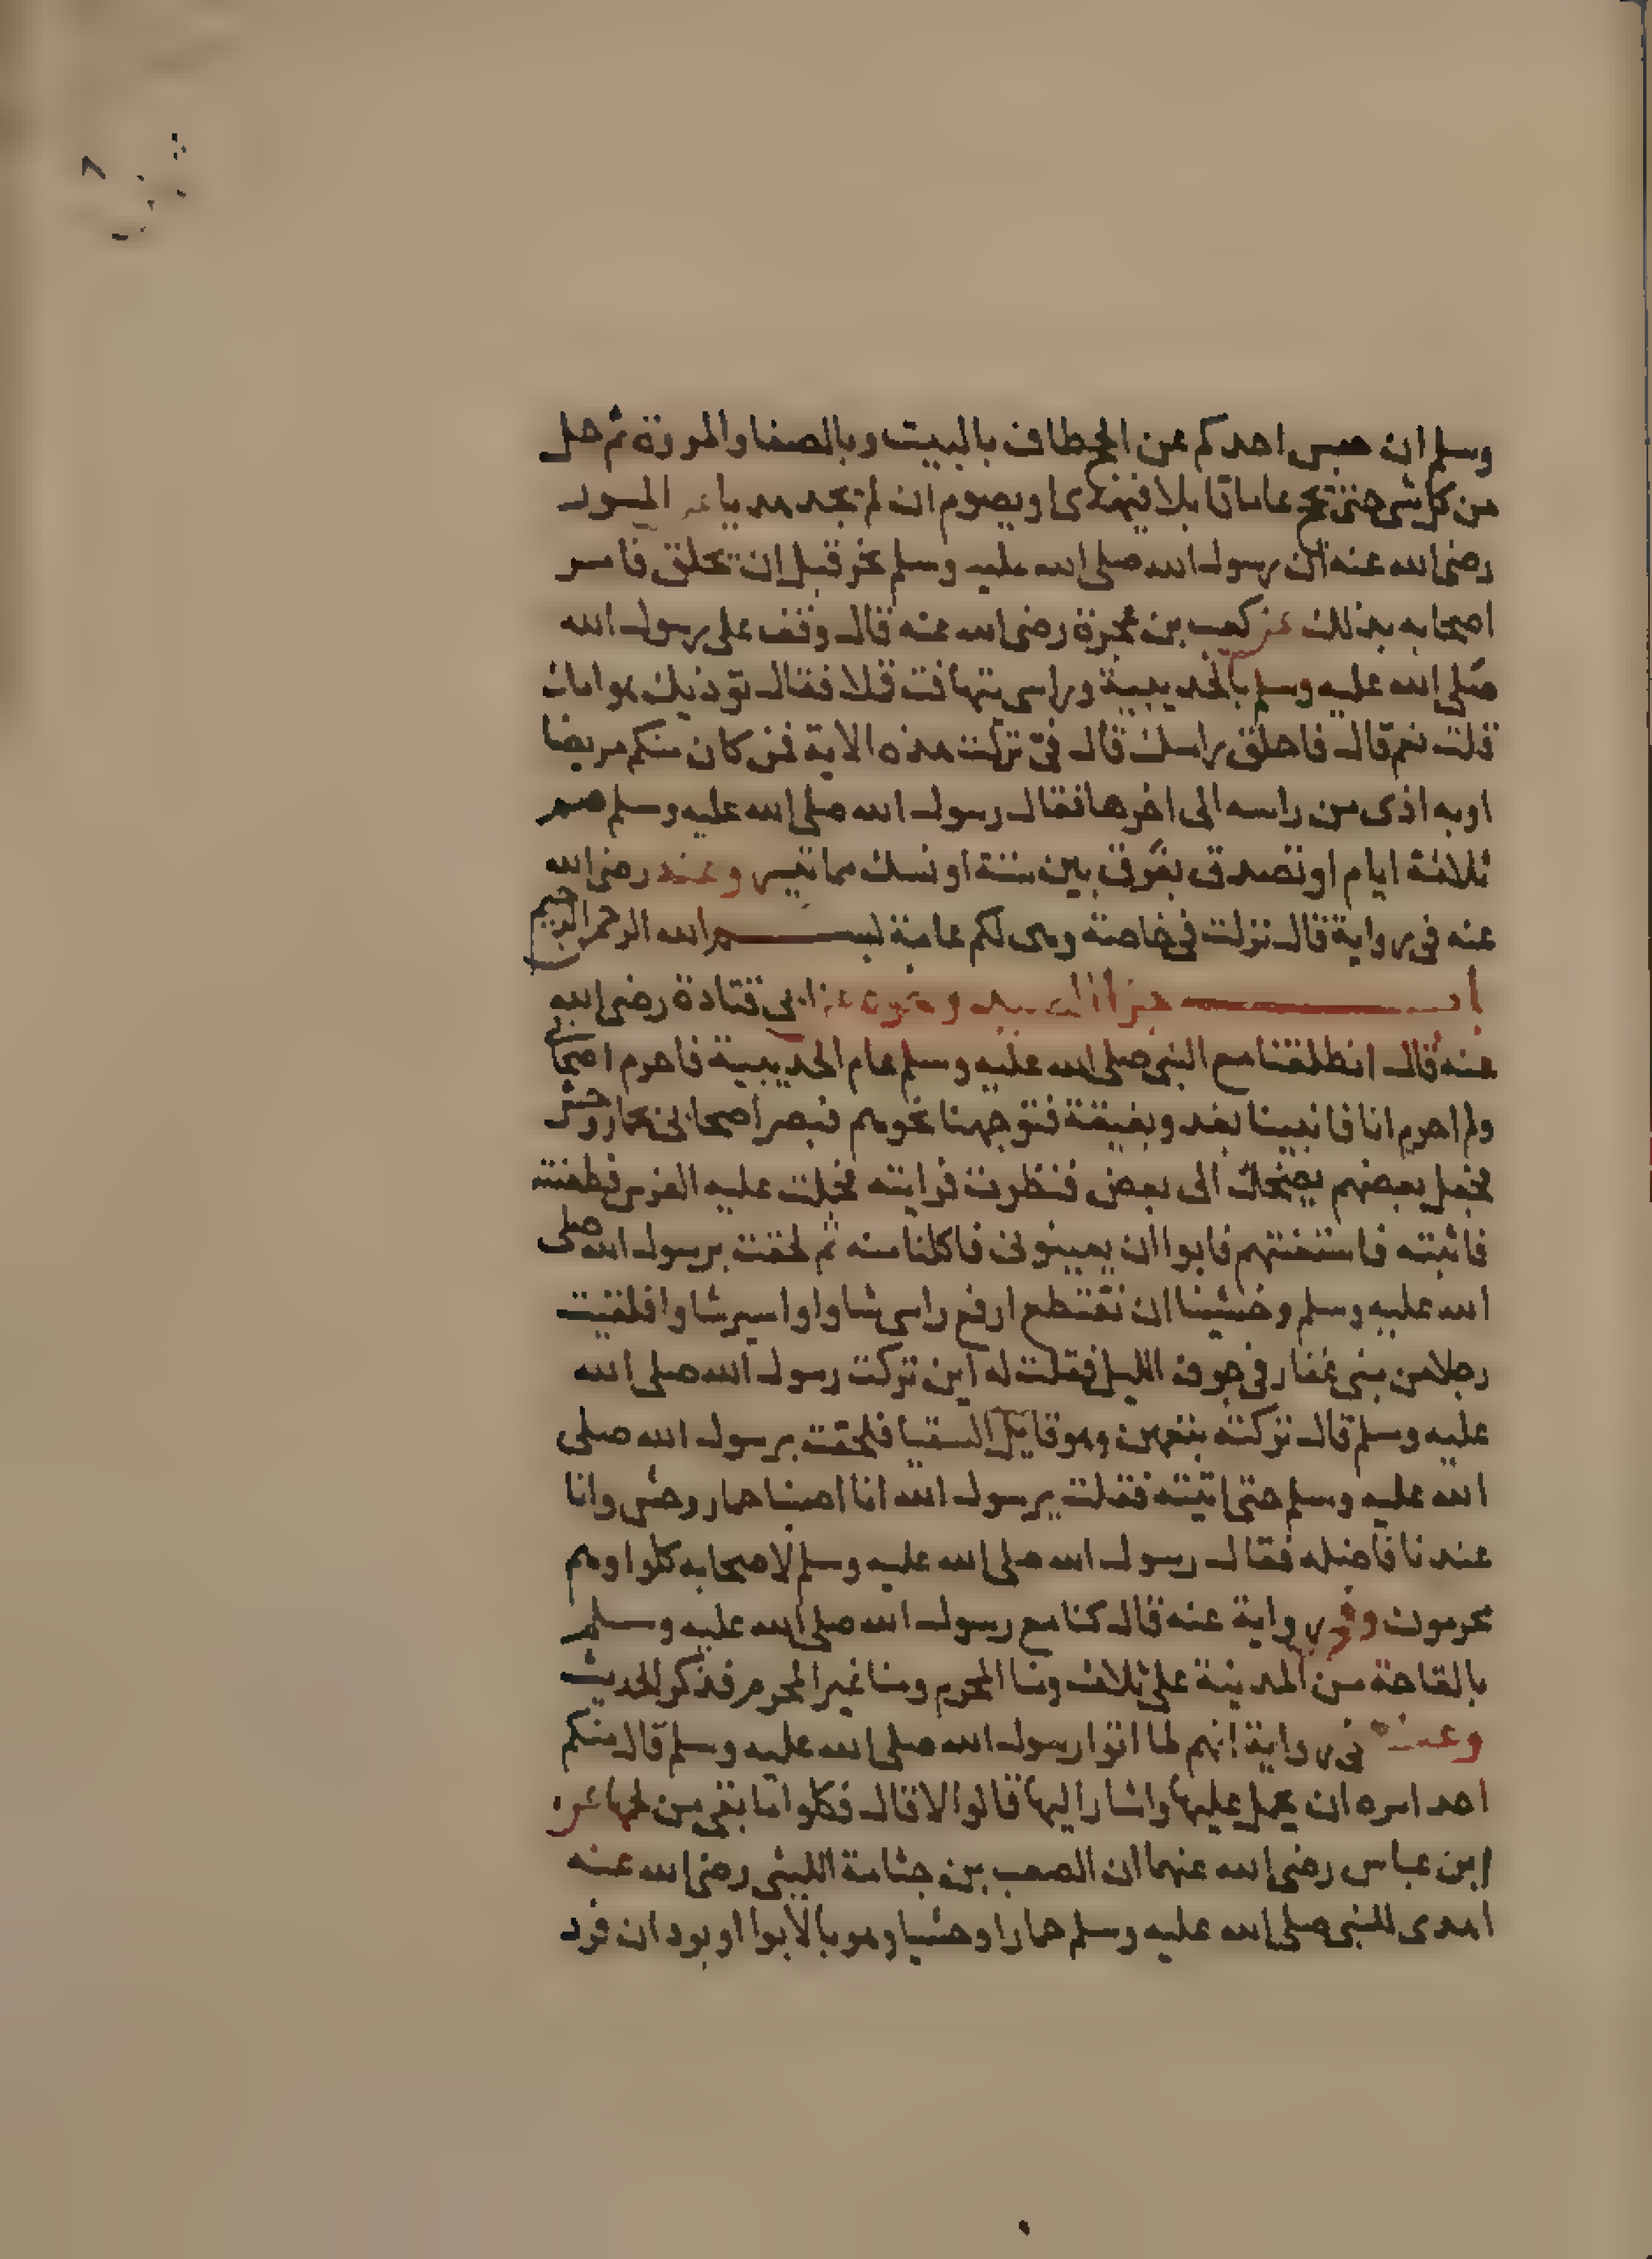 وسلم ان حبس احدكم عن الحج طاف بالبيت وبالصفا والمروة ثم حل
من كل شئ حتى يحج عاما قابلا فيهدى او يصوم ان لم تجد هديا عن المسور
رضى الله عنه ان رسول الله صلى الله عليه وسلم نحر قبل ان تحلق فامر
اصحابه بذلك عن كعب بن عجرة رضى الله عنه قال وقف على رسول الله
صلى الله عليه وسلم بالحديبية وراسى يتهافت قملا فقال تؤذيك هوامك
قلت نعم قال فاحلق راسك قال فىّ نزلت هذه الاية فمن كان منكم مريضا
او به اذى من راسه الى اخرها فقال رسول الله صلى الله عليه وسلم صم
ثلاثة ايام او تصدق بفرق بين ستة او نسك مما تيسر وعنه رضى الله
عنه فى رواية قال نزلت فى خاصة وهى لكم عامة بسم الله الرحمن الرحيم
باب جزاء الصيد ونحوه عن ابى قتادة رضى الله
عنه قال انطلقنا مع النبى صلى الله عليه وسلم عام الحديبية فاحرم اصحابه
ولم احرم انا فانبينا بعد وبغيقة فتوجهنا نحوهم فبصر اصحابى بحمار وحش
فجعل بعضهم يضحك الى بعض فنظرت فرايته فحملت عليه الفرس فطعنته
فاثبته فاستعنتهم فابوا ان يعينونى فاكلنا منه ثم لحقت برسول الله صلى
الله عليه وسلم وخشينا ان نقتطع ارفع راسى شاوا واسير شاوا فلقيت
رجلا من بنى غفار فى جوف الليل فقلت له اين تركت رسول الله صلى الله
عليه وسلم قال تركته بتعهن وهو قايل السقيا فلحقت برسول الله صلى
الله عليه وسلم حتى اتيته فقلت يرسول الله انا اصبنا حمار وحش وانا
عندنا فاضله فقال رسول الله صلى الله عليه وسلم لاصحابه كلوا وهم
محرمون وفى رواية عنه قال كنا مع رسول الله صلى الله عليه وسلم
بالقاحة من المدينة على ثلاث ومنا المحرم ومنا غير المحرم فذكر الحديث
وعنه فى رواية انهم لما اتوا رسول الله صلى الله عليه وسلم قال منكم
احد امره ان يحمل عليها واشار اليها قالوا لا قال فكلوا ما بقى من لحمها عن
ابن عباس رضى الله عنهما ان الصعب بن جثامة الليثى رضى الله عنه
اهدى للنبى صلى الله عليه وسلم حمارا وحشيا وهو بالابوا او بودان فرد